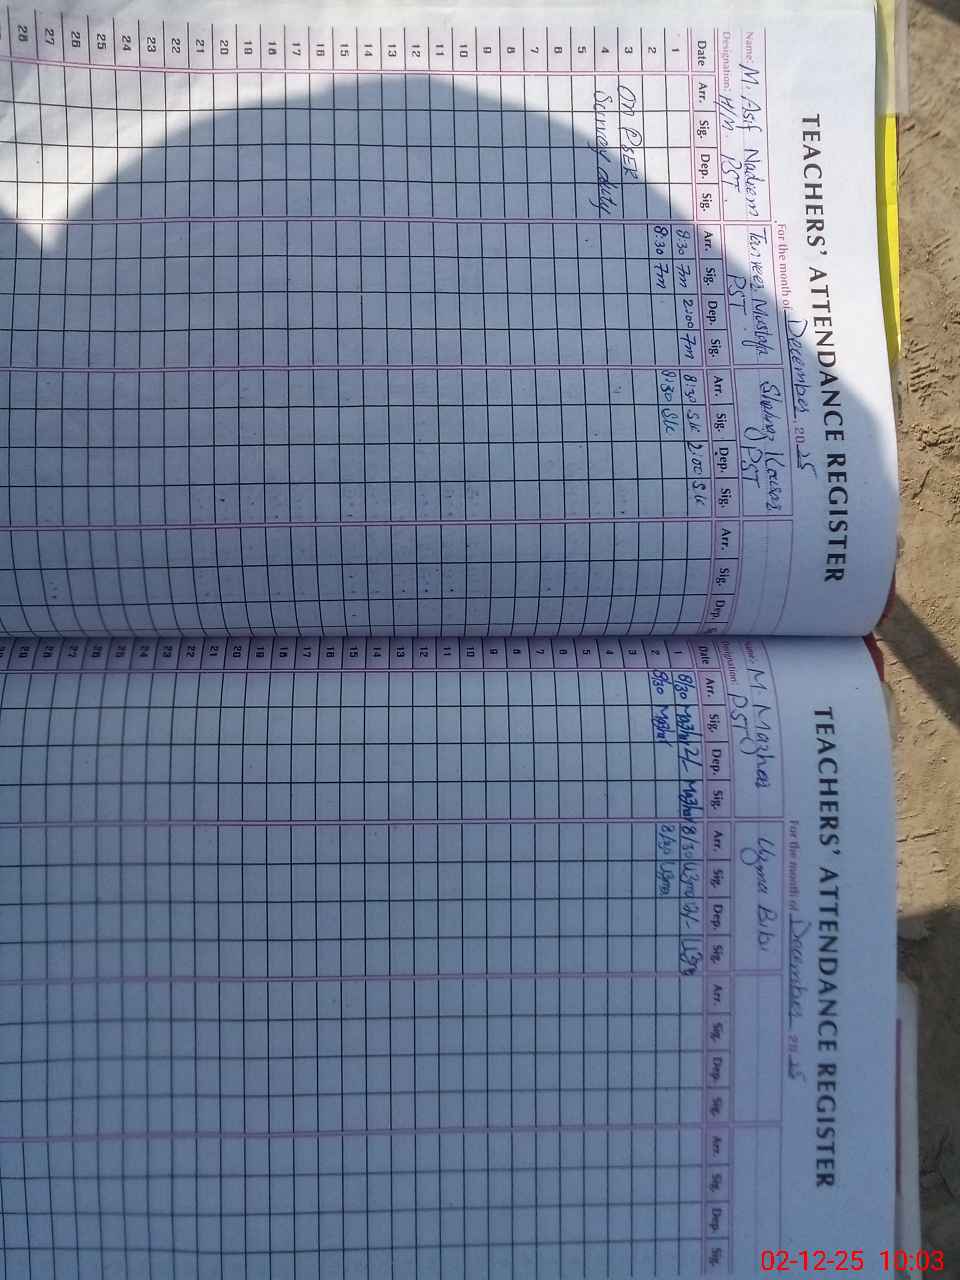 TEACHERS' ATTENDANCE REGISTER
For the month of December, 2025
Name: M. Asif Nadeem Tanveer Mustafa Shahnaz Kausar
Designation: H/M. PST. PST. PST
Date Arr. Sig. Dep. Sig. Arr. Sig. Dep. Sig. Arr. Sig. Dep. Sig. Arr. Sig. Dep. S
1 8:30 Tm 2:00 Tm 8:30 SK 2:00 SK
2 8:30 Tm 8:30 SK
3 On PSER
4 Survey duty
5
6
7
8
9
10
11
12
13
14
15
16
17
18
19
20
21
22
23
24
25
26
27
28
TEACHERS' ATTENDANCE REGISTER
For the month of December 2025
Name: M. Mazhar Uzma Bibi
Designation: PST
Date Arr. Sig. Dep. Sig. Arr. Sig. Dep. Sig. Arr. Sig. Dep. Sig. Arr. Sig. Dep. Sig.
1 8/30 Mazhar 2/- Mazhar 8/30 Uzma 2/- Uzma
2 8/30 Mazhar 8/30 Uzma
3
4
5
6
7
8
9
10
11
12
13
14
15
16
17
18
19
20
21
22
23
24
25
26
27
28
29
02-12-25 10:03